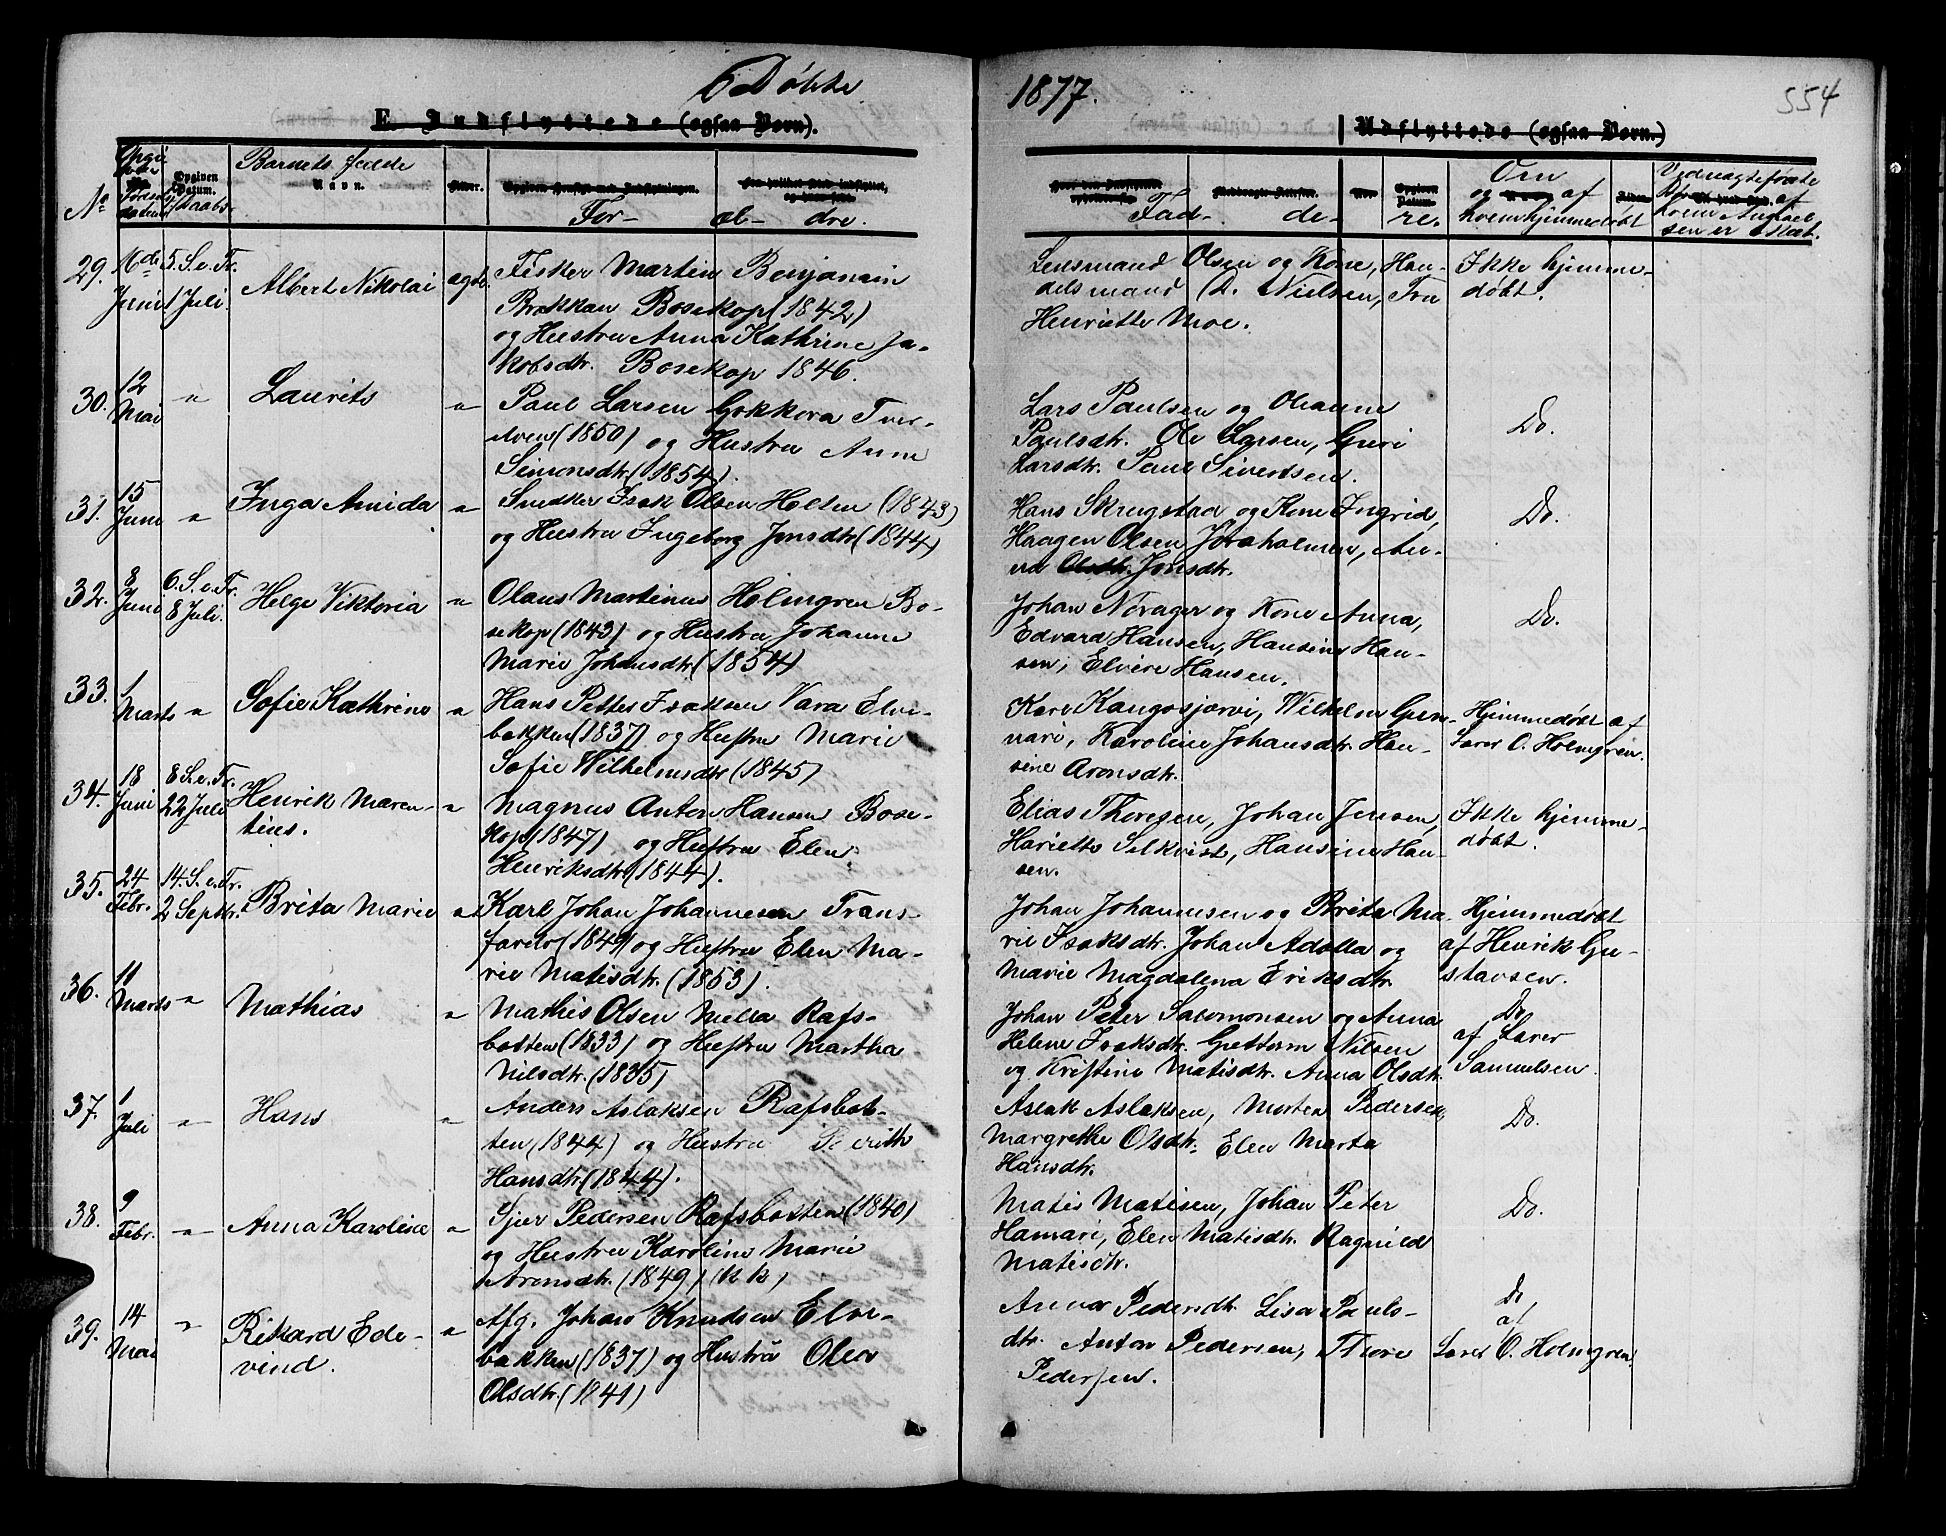 Døbte
1877.
554
E. Indflyttede (ogsaa Børn).
Udflyttede (ogsaa Børn.)
No
Barnets fulde
Navn.
Opgiven
Datum.
Daabs-
For- æl- dre.
Fad- de- re.
Om
og af
hvem hjemmedøbt
29. Mdi Juni
5. S. e. Tr. 1 Juli.
Albert Nikolai
ægte.
Fisker Martin Benjamin
Brakkan Bosekop (1842)
og Hustru Anna Kathrine Ja-
kobsdtr. Bosekop 1846.
Lensmand Olsen og Kone, Han-
delsmand Nielsen, Fru
Henriette Moe.
Ikke hjemme-
døbt.
30. 12 Mai
"
Laurits
"
Paul Larsen Gokkora Tver-
elven (1850) og Hustru Anne
Simonsdtr. (1854).
Lars Paulsen og Oleanne
Paulsdtr. Ole Larsen, Guri
Larsdtr. Paul Sivertsen.
Do.
31. 15 Juni
"
Inga Amida
"
Snedker Isak Olsen Holten (1843)
og Hustru Ingeborg Jonsdtr (1844)
Hans Skrugstad og Kone Ingrid,
Haagen Olsen Joraholmen, An-
na Olsdtr. Jonsdtr.
Do.
32. 8 Juni
6. S. e. Tr. 8 Juli.
Helge Viktoria
"
Olaus Martinus Holmgren Bo-
sekop (1843) og Hustru Johanne
Marie Johansdtr (1854)
Johan Norager og Kone Anna,
Edvard Hansen, Hansine Han-
sen, Elvire Hansen.
Do.
33. 1 Marts
"
Sofie Kathrine
"
Hans Petter Isaksen Vara Elve-
bakken (1837) og Hustru Marie
Sofie Wilhelmsdtr (1845)
Kare Kangosjærvi, Wilhelm Gun-
nari, Karoline Johansdtr. Han-
sine Aronsdtr.
Hjemmedøbt af
Lærer O. Holmgren.
34. 18 Juni
8 S. e. Tr. 22 Juli
Henrik Maren-
tius.
"
Magnus Anton Hansen Bose-
kop (1847) og Hustru Elen
Henriksdtr (1844).
Elias Thoresen, Johan Jensen,
Hariette Selkvist, Hansine Han-
sen.
Ikke hjemme-
døbt.
35. 24 Febr.
14. S. e. Tr. 2 Septbr.
Brita Marie
"
Karl Johan Johannesen Trans-
farelv (1849) og Hustru Elen Ma-
rie Matisdtr. (1853).
Johan Johannesen og Brita Ma-
rie Isaksdtr. Johan Adolla og
Marie Magdalena Eriksdtr.
Hjemmedøbt
af Henrik Gu-
stavsen.
36. 11 Marts
"
Mathias
"
Mathis Olsen Mella Rafs-
botten (1833) og Hustru Martha
Nilsdtr. (1835)
Johan Peter Salomonsen og Anna
Helene Isaksdtr. Guttorm Nilsen
og Kristine Matisdtr. Anna Olsdtr.
Do
af Lærer
Samuelsen.
37. 1 Juli
"
Hans
"
Anders Aslaksen Rafsbot-
ten (1844) og Hustru
Hansdtr (1844).
Aslak Aslaksen, Morten Pedersen,
Margrethe Olsdtr. Elen Marta
Hansdtr.
Do.
38. 9 Febr.
"
Anna Karoline
"
Sjur Pedersen Rafsbotten (1840)
og Hustru Karoline Marie
Aronsdtr. (1849)
Matis Matisen, Johan Peter
Hamari, Elen Matisdtr. Ragnild
Matisdtr.
Do.
39. 14 Mai
"
Rikard Ede-
vind.
"
Afg. Johan Knudsen Elve-
bakken (1837) og Hustru Olea
Olsdtr. (1841)
Anna Pedersdtr. Lisa Pauls-
dtr. Anton Pedersen, Thore
Pedersen.
Do
af
Lærer O. Holmgren